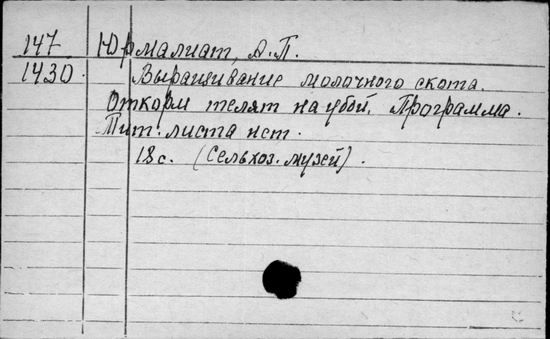 147 Юрмалиат, А.П.
1430. Выращивание молочного скота.
Откорм телят на убой. Программа.
Тит. листа нет.
18 с. (Сельхоз. музей).